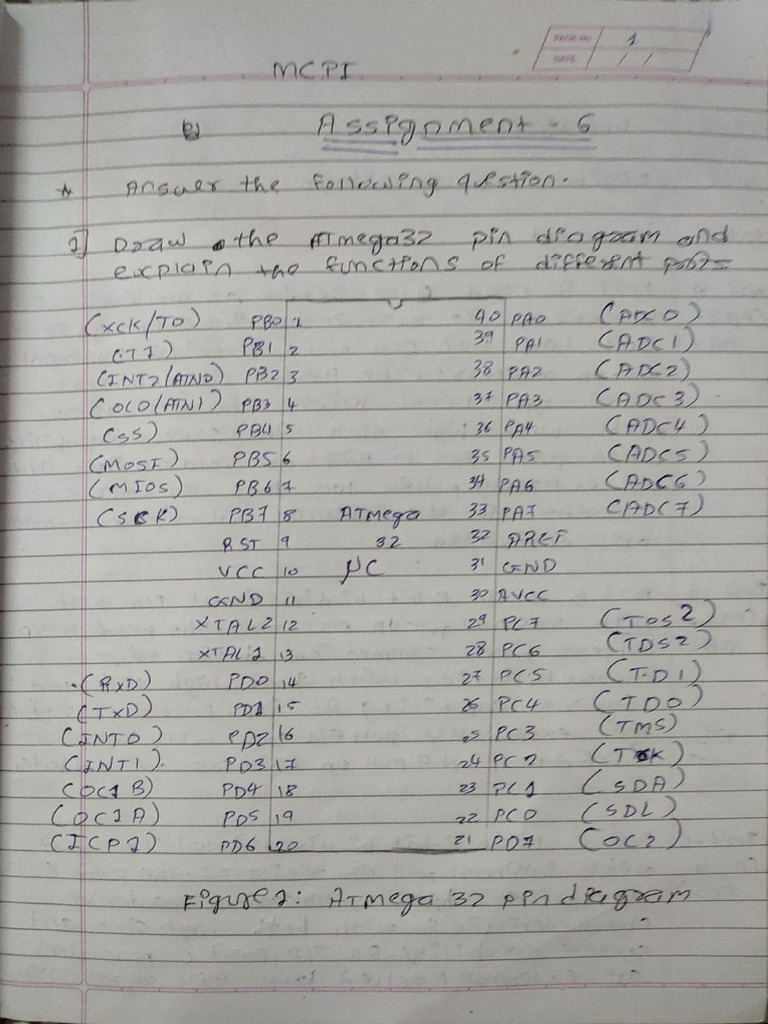 PAGE NO. 1
DATE / /
MCPI
Assignment - 6
* Answer the following question.
1] Draw the ATmega32 pin diagram and
explain the functions of different
(XCK/T0) PB0 1 40 PA0 (ADC0)
(T1) PB1 2 39 PA1 (ADC1)
(INT2/AIN0) PB2 3 38 PA2 (ADC2)
(OC0/AIN1) PB3 4 37 PA3 (ADC3)
(SS) PB4 5 36 PA4 (ADC4)
(MOSI) PB5 6 35 PA5 (ADC5)
(MIOS) PB6 7 34 PA6 (ADC6)
(SCK) PB7 8 ATmega 33 PA7 (ADC7)
RST 9 32 32 AREF
VCC 10 μC 31 GND
GND 11 30 AVCC
XTAL2 12 29 PC7 (TOS2)
XTAL1 13 28 PC6 (TDS2)
(RXD) PD0 14 27 PC5 (TD1)
(TXD) PD1 15 26 PC4 (TDO)
(INT0) PD2 16 25 PC3 (TMS)
(INT1) PD3 17 24 PC2 (TCK)
(OC1B) PD4 18 23 PC1 (SDA)
(OC1A) PD5 19 22 PC0 (SDL)
(ICP1) PD6 20 21 PD7 (OC2)
Figure 1: ATmega 32 pin diagram